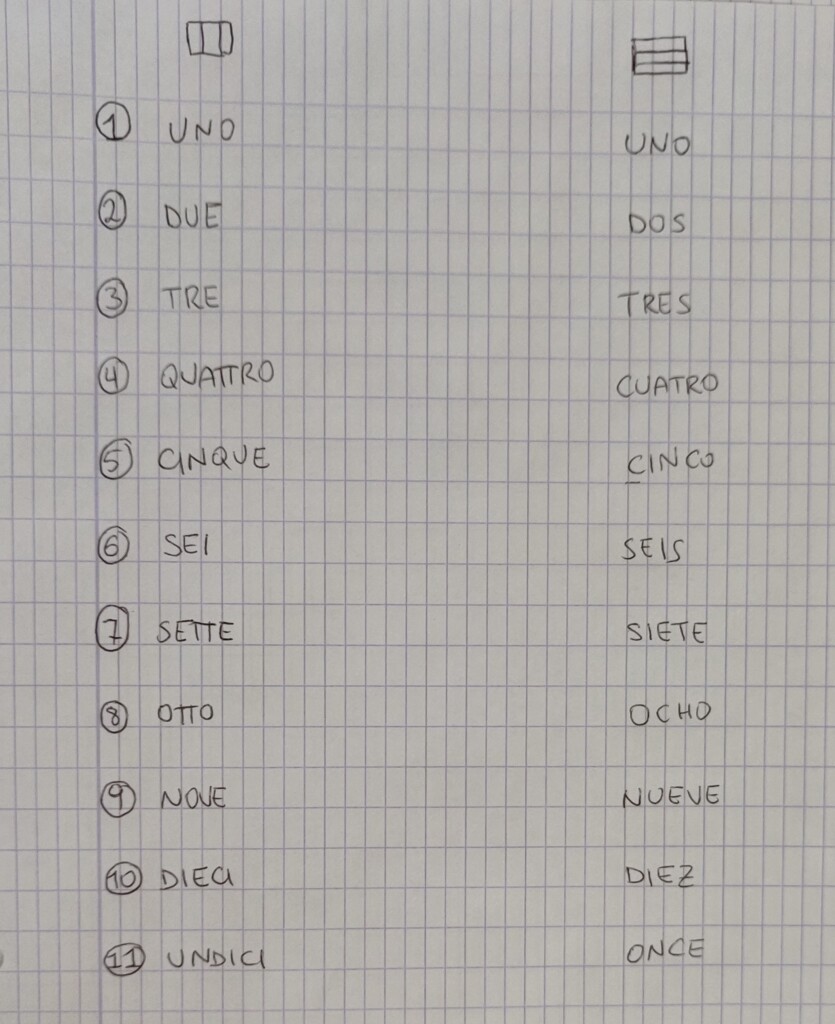 1 UNO UNO
2 DUE DOS
3 TRE TRES
4 QUATTRO CUATRO
5 CINQUE CINCO
6 SEI SEIS
7 SETTE SIETE
8 OTTO OCHO
9 NOVE NUEVE
10 DIECI DIEZ
11 UNDICI ONCE